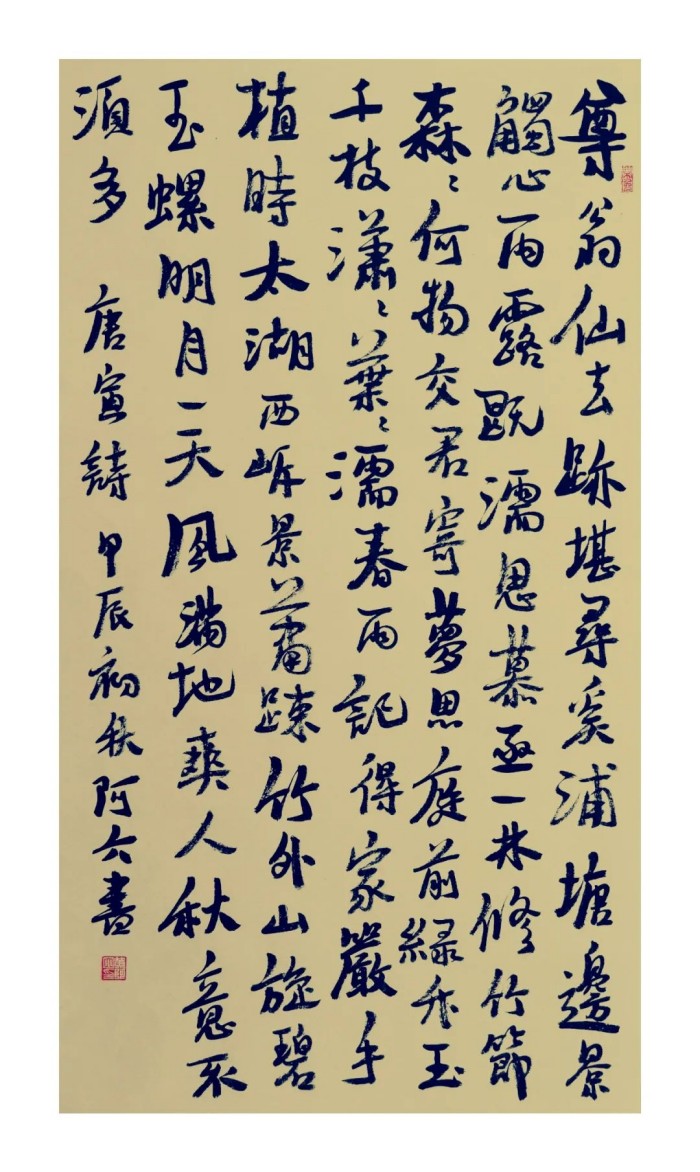 尊翁仙去跡堪尋奚浦塘邊景
觸心雨露既濡思慕亟一林修竹節
森〻何物交君寄夢思庭前緑竹玉
千枝瀟〻葉〻濡春雨記得家嚴手
植時太湖西岸景蕭踈竹外山旋碧
玉螺明月一天風滿地爽人秋意不
須多 唐寅詩 甲辰初秋阿六書